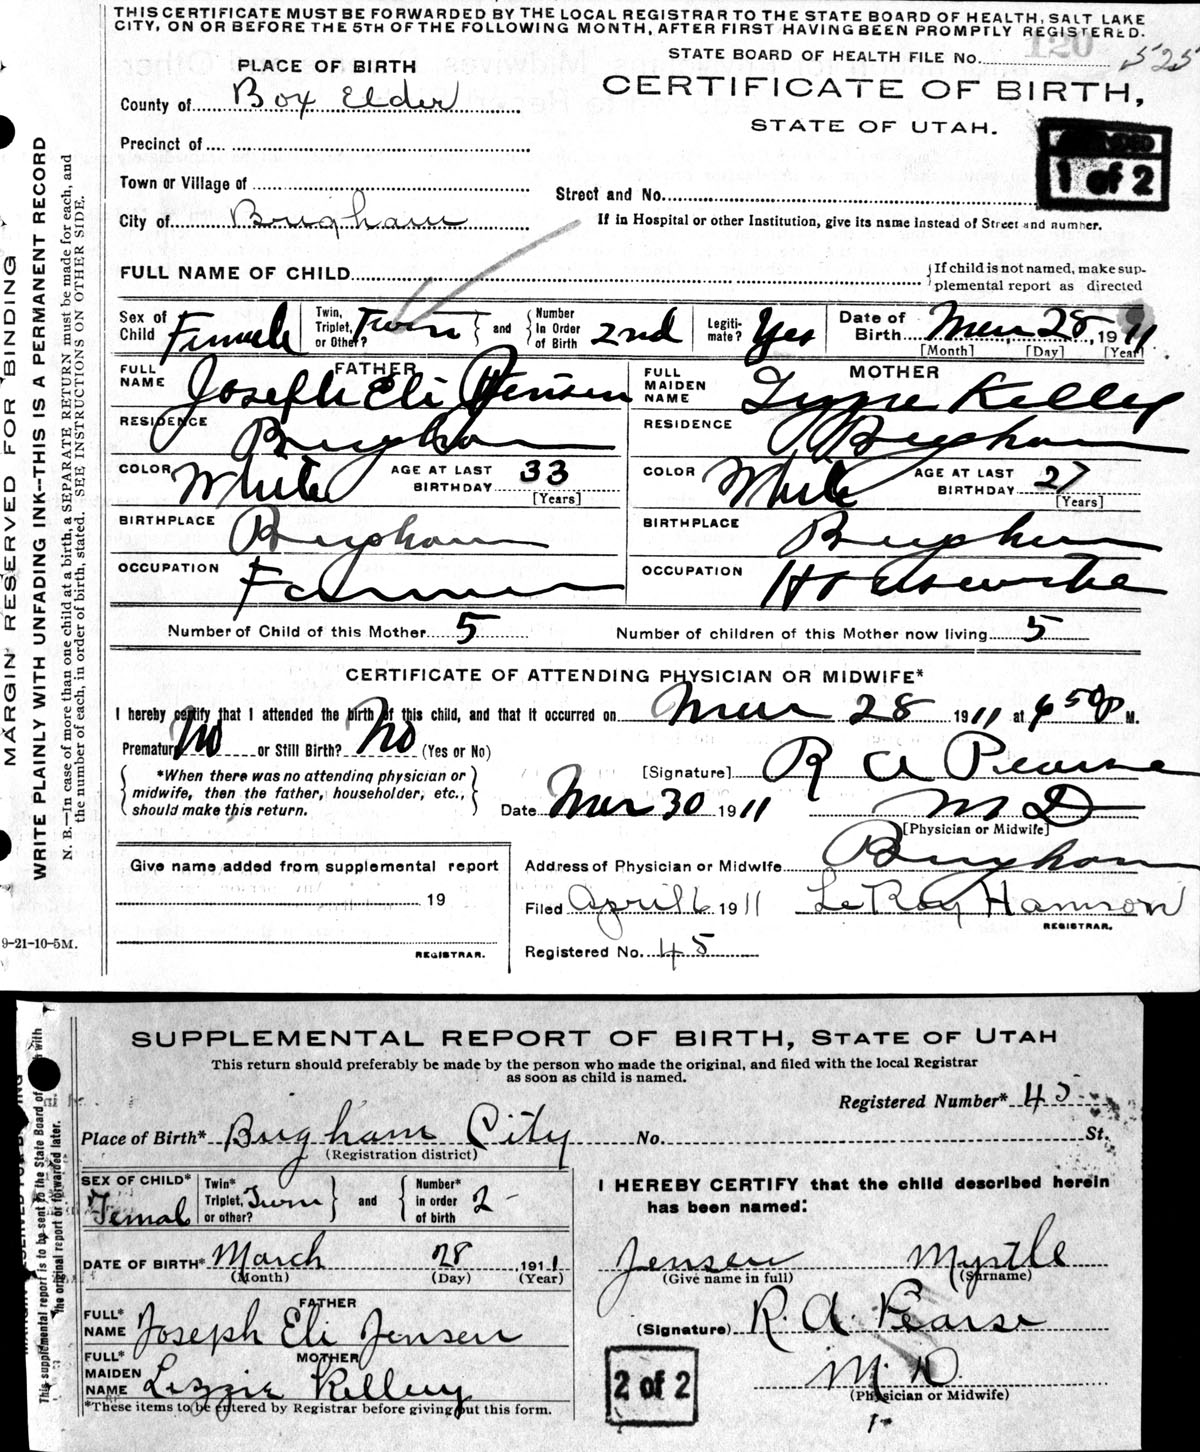 THIS CERTIFICATE MUST BE FORWARDED BY THE LOCAL REGISTRAR TO THE STATE BOARD OF HEALTH, SALT LAKE
CITY, ON OR BEFORE THE 5TH OF THE FOLLOWING MONTH, AFTER FIRST HAVING BEEN PROMPTLY REGISTERED.
120
STATE BOARD OF HEALTH FILE No. 525
PLACE OF BIRTH
CERTIFICATE OF BIRTH,
County of Box Elder
STATE OF UTAH.
Precinct of
1 of 2
Town or Village of
Street and No.
City of Brigham
If in Hospital or other Institution, give its name instead of Street and number.
FULL NAME OF CHILD
If child is not named, make sup-
plemental report as directed
Sex of Child Female
Twin, Triplet, or Other? Twin
and
Number In Order of Birth 2nd
Legiti- mate? Yes
Date of Birth Mar 28, 1911
[Month] [Day] [Year]
FATHER
FULL NAME Joseph Eli Jensen
MOTHER
FULL MAIDEN NAME Lizzie Kelley
RESIDENCE Brigham
RESIDENCE Brigham
COLOR White AGE AT LAST BIRTHDAY 33 [Years]
COLOR White AGE AT LAST BIRTHDAY 27 [Years]
BIRTHPLACE Brigham
BIRTHPLACE Brigham
OCCUPATION Farmer
OCCUPATION Housewife
Number of Child of this Mother 5
Number of children of this Mother now living 5
CERTIFICATE OF ATTENDING PHYSICIAN OR MIDWIFE*
I hereby certify that I attended the birth of this child, and that it occurred on Mar 28 1911 at 6 50 P M.
Premature No or Still Birth? No (Yes or No)
*When there was no attending physician or
midwife, then the father, householder, etc.,
should make this return.
[Signature] R A Pearse
Date Mar 30 1911 M D
[Physician or Midwife]
Give name added from supplemental report
19
REGISTRAR.
Address of Physician or Midwife Brigham
Filed April 6 1911 LeRoy Hamson
REGISTRAR.
Registered No. 45
MARGIN RESERVED FOR BINDING
WRITE PLAINLY WITH UNFADING INK--THIS IS A PERMANENT RECORD
N. B.—In case of more than one child at a birth, a SEPARATE RETURN must be made for each, and
the number of each, in order of birth, stated. SEE INSTRUCTIONS ON OTHER SIDE.
9-21-10-5M.
SUPPLEMENTAL REPORT OF BIRTH, STATE OF UTAH
This return should preferably be made by the person who made the original, and filed with the local Registrar
as soon as child is named.
Registered Number* 45
Place of Birth* Brigham City No. St.
(Registration district)
SEX OF CHILD* Femal
Twin* Triplet, or other? Twin
and
Number* in order of birth 2
I HEREBY CERTIFY that the child described herein
has been named:
DATE OF BIRTH* March 28 1911
(Month) (Day) (Year)
Jensen Myrtle
(Give name in full) (Surname)
FATHER
FULL* NAME Joseph Eli Jensen
(Signature) R. A. Pearse
MOTHER
FULL* MAIDEN NAME Lizzie Kelley
2 of 2
M. D.
(Physician or Midwife)
*These items to be entered by Registrar before giving out this form.
This supplemental report is to be sent to the State Board of with
the original report or forwarded later.